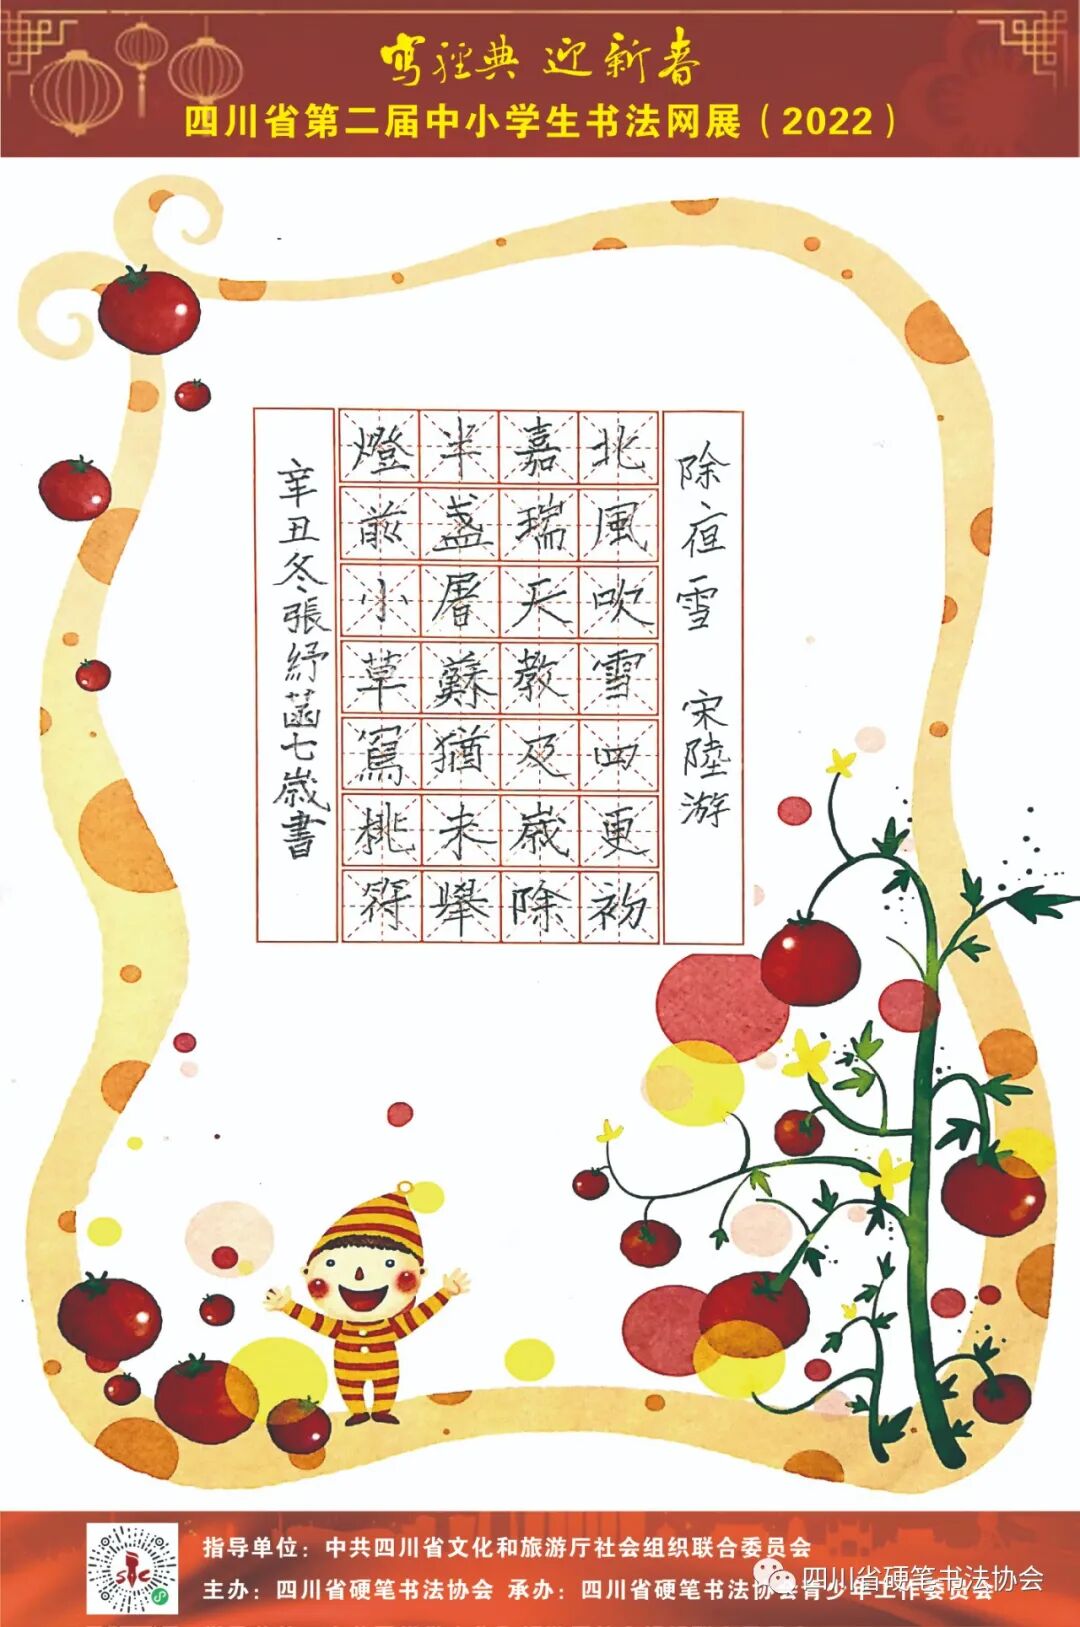 写經典 迎新春
四川省第二届中小学生书法网展（2022）
除夜雪 宋陸游
北風吹雪四更初
嘉瑞天教及歲除
半盞屠蘇猶未舉
燈前小草寫桃符
辛丑冬張紓菡七歲書
指导单位：中共四川省文化和旅游厅社会组织联合委员会
主办：四川省硬笔书法协会 承办：四川省硬笔书法协会青少年工作委员会
四川省硬笔书法协会